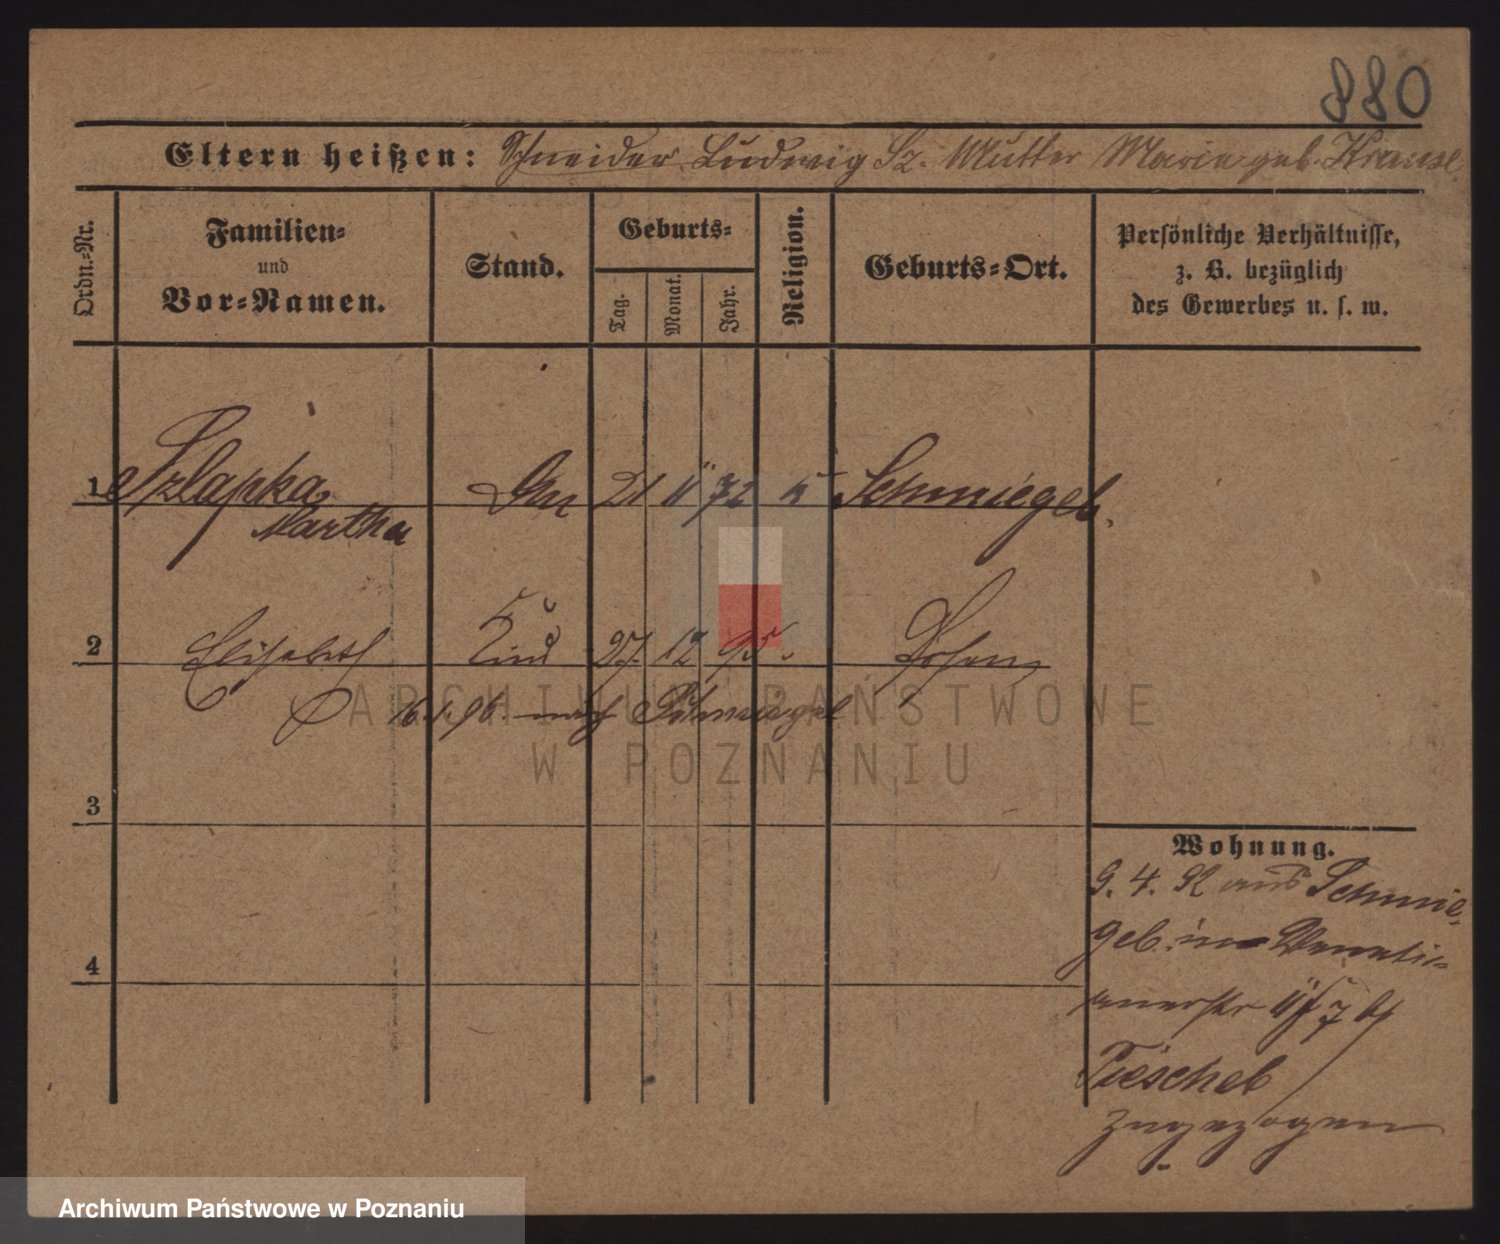 880
Eltern heißen: Schneider Ludwig Sz. Mutter Marie geb. Krause.
Ordn.-Nr.
Familien-
und
Vor-Namen.
Stand.
Geburts-
Tag.
Monat.
Jahr.
Religion.
Geburts-Ort.
Persönliche Verhältnisse,
z. B. bezüglich
des Gewerbes u. s. w.
1 Szlapka 21 11 72 k Schmiegel.
Martha
2 Elisabeth Kind 27. 12 95. Posen
16.1.96. nach Schmiegel
3
4
Wohnung.
9. 4. 92 aus Schmie-
gel in
11
Tieschel
zugezogen
ARCHIWUM PAŃSTWOWE
W POZNANIU
Archiwum Państwowe w Poznaniu